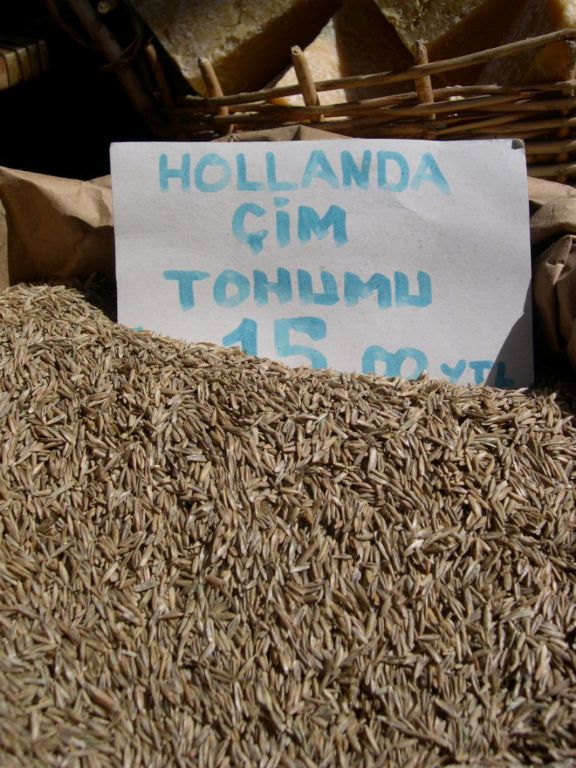 HOLLANDA
ÇİM
TOHUMU
15.00 YTL